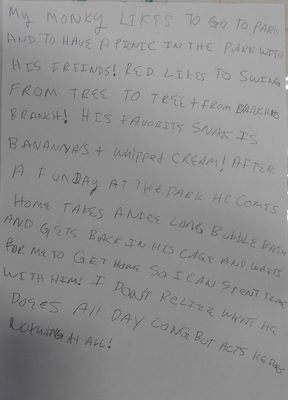 My MONKY LIKES TO GO TO PARK
AND TO HAVE A PICNIC IN THE PARK WITH
HIS FREINDS! RED LIKES TO SWING
FROM TREE TO TREE + FROM BRANCH TO
BRANCH! HIS FAVORITE SNAK IS
BANANNA'S + Whipped CREAM! AFTER
A FUNDAY AT THE PARK HE COMES
HOME TAKES A NICE LONG BUBBLE BATH
AND GETS BACK IN HIS CAGE AND WAITS
FOR ME TO GET HOME SO I CAN SPENT TIME
WITH HIM! I DON'T RELIZE WHAT HE
DOES All DAY LONG BUT ACTS HE DOES
NOTHING AT ALL!